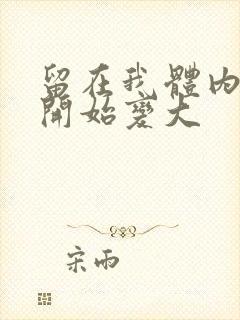 留在我體內
開始變大
宋雨